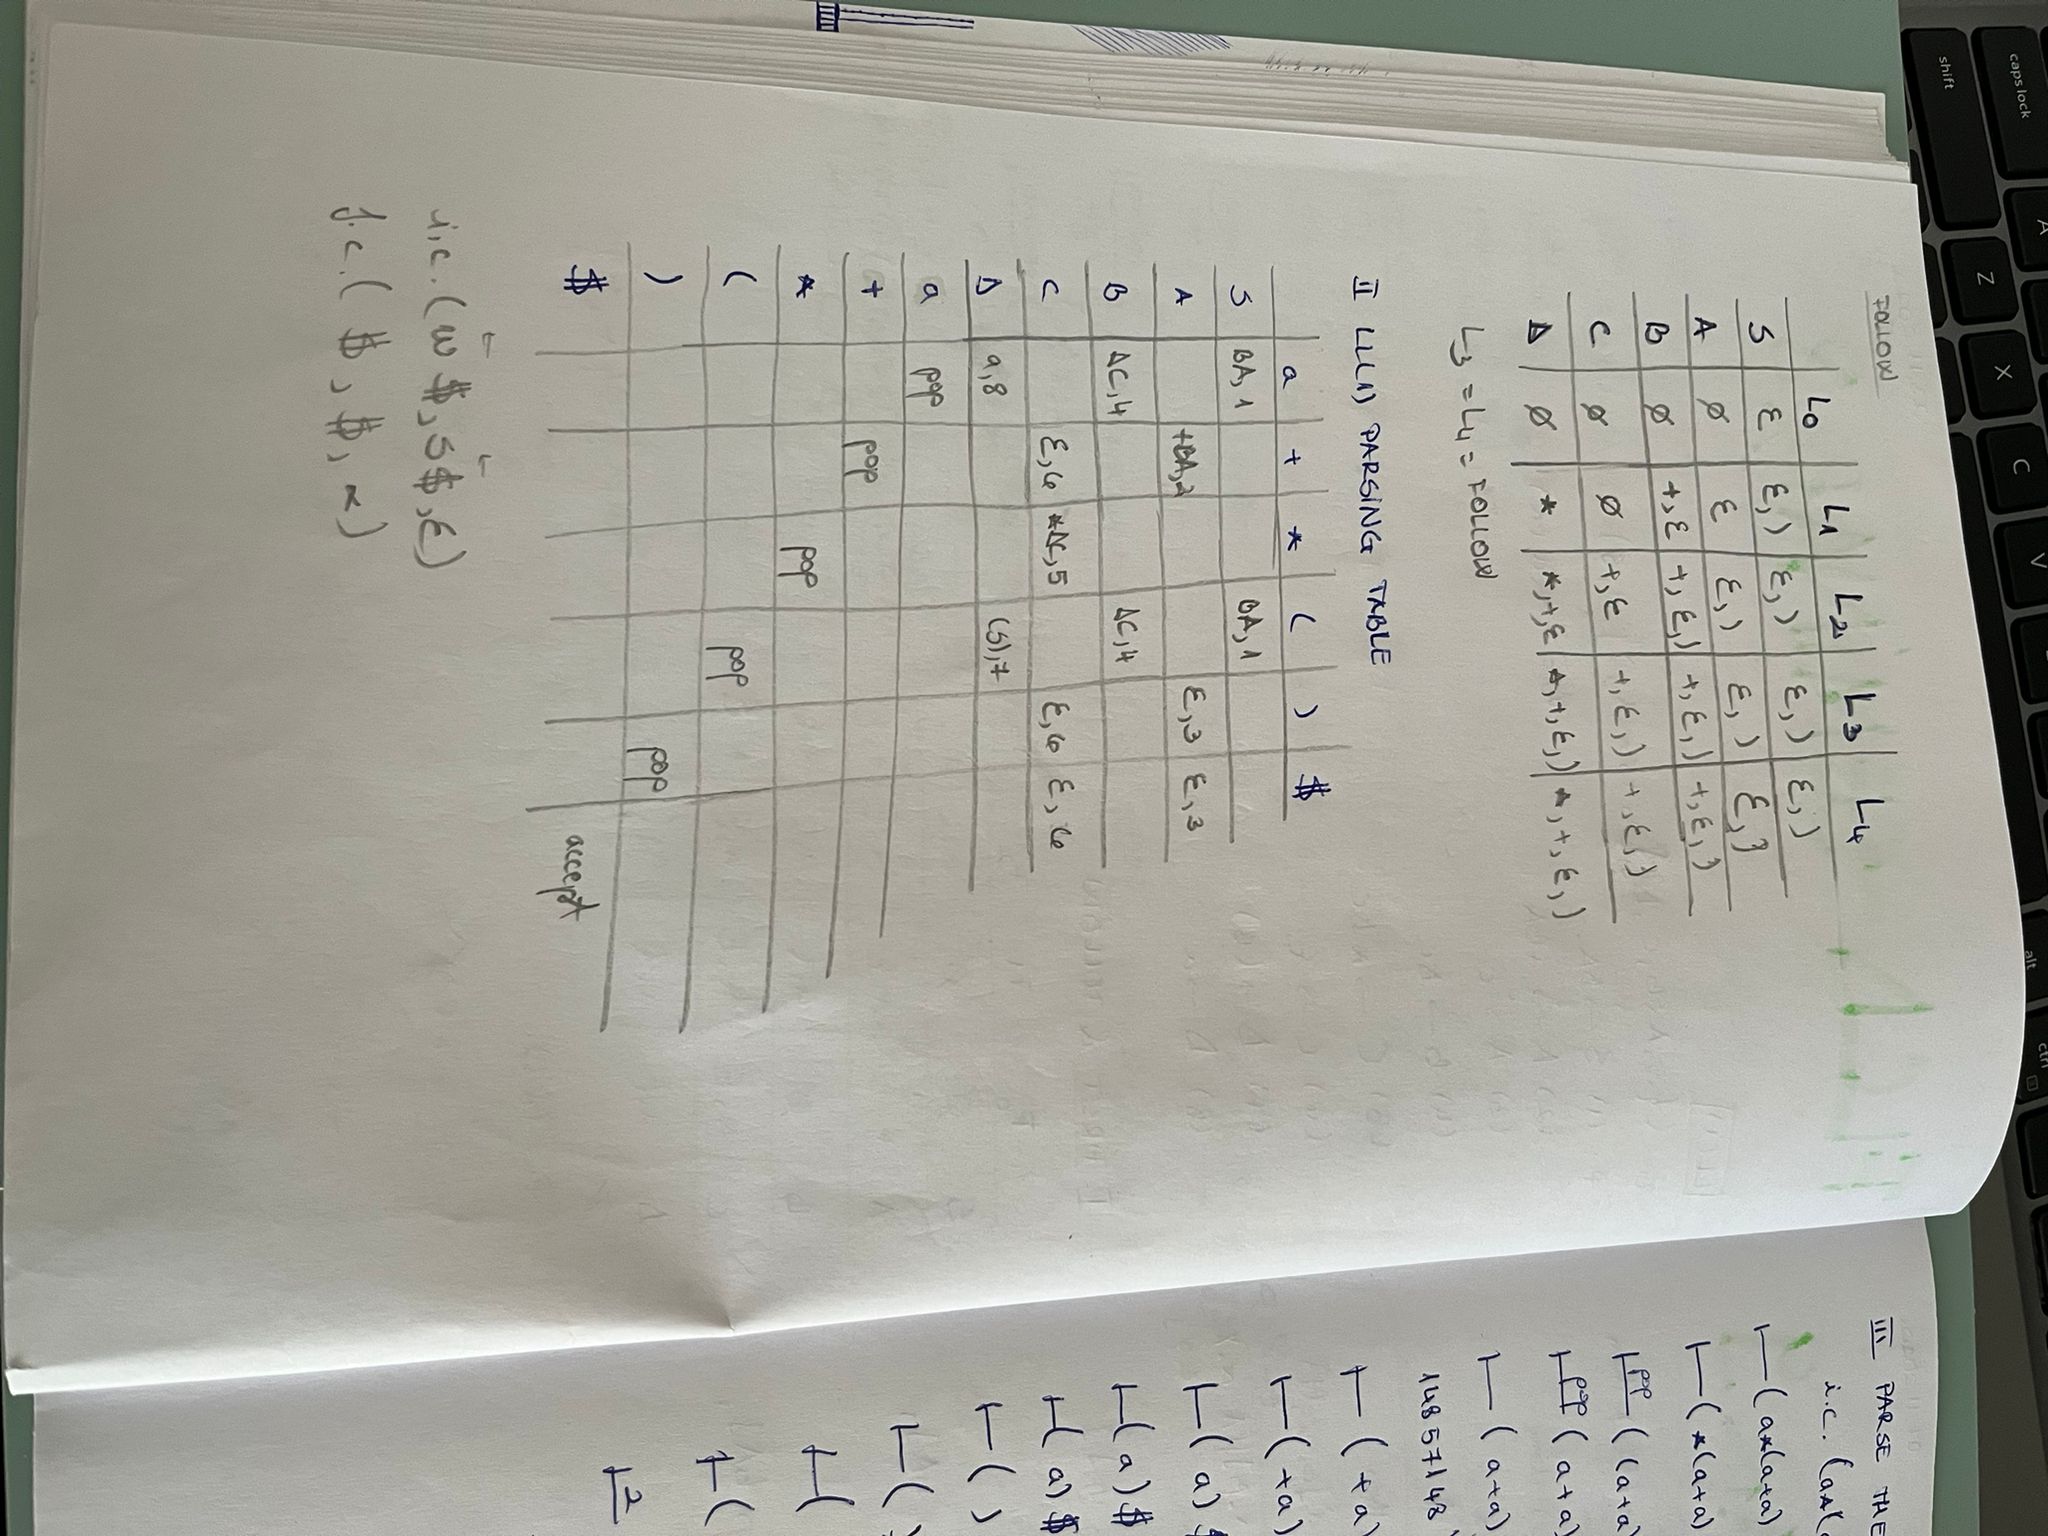 caps lock A Z X C V alt ctrl
shift
FOLLOW
L0 L1 L2 L3 L4
S ε ε, ) ε, ) ε, ) ε, )
A ∅ ε ε, ) ε, ) ε, )
B ∅ +, ε +, ε, ) +, ε, ) +, ε, )
C ∅ ∅ +, ε +, ε, ) +, ε, )
D ∅ * *, +, ε *, +, ε, ) *, +, ε, )
L3 = L4 = FOLLOW
II LL(1) PARSING TABLE
a + * ( ) $
S BA, 1 BA, 1
A +BA, 2 ε, 3 ε, 3
B DC, 4 DC, 4
C ε, 6 *DC, 5 ε, 6 ε, 6
D a, 8 (S), 7
a pop
+ pop
* pop
( pop
) pop
$ accept
i.c. (w $, S $, ε)
f.c. ( $, $, α)
III PARSE THE
i.c. (a*(
⊢ ( a*(a+a)
⊢ ( *(a+a)
⊢pop ( (a+a)
⊢pop ( a+a)
⊢ ( a+a)
14857148
⊢ ( +a)
⊢ ( +a)
⊢ ( a) $
⊢ ( a) $
⊢ ( a) $
⊢ ( )
⊢ ( )
⊢ (
⊢ (
⊢2